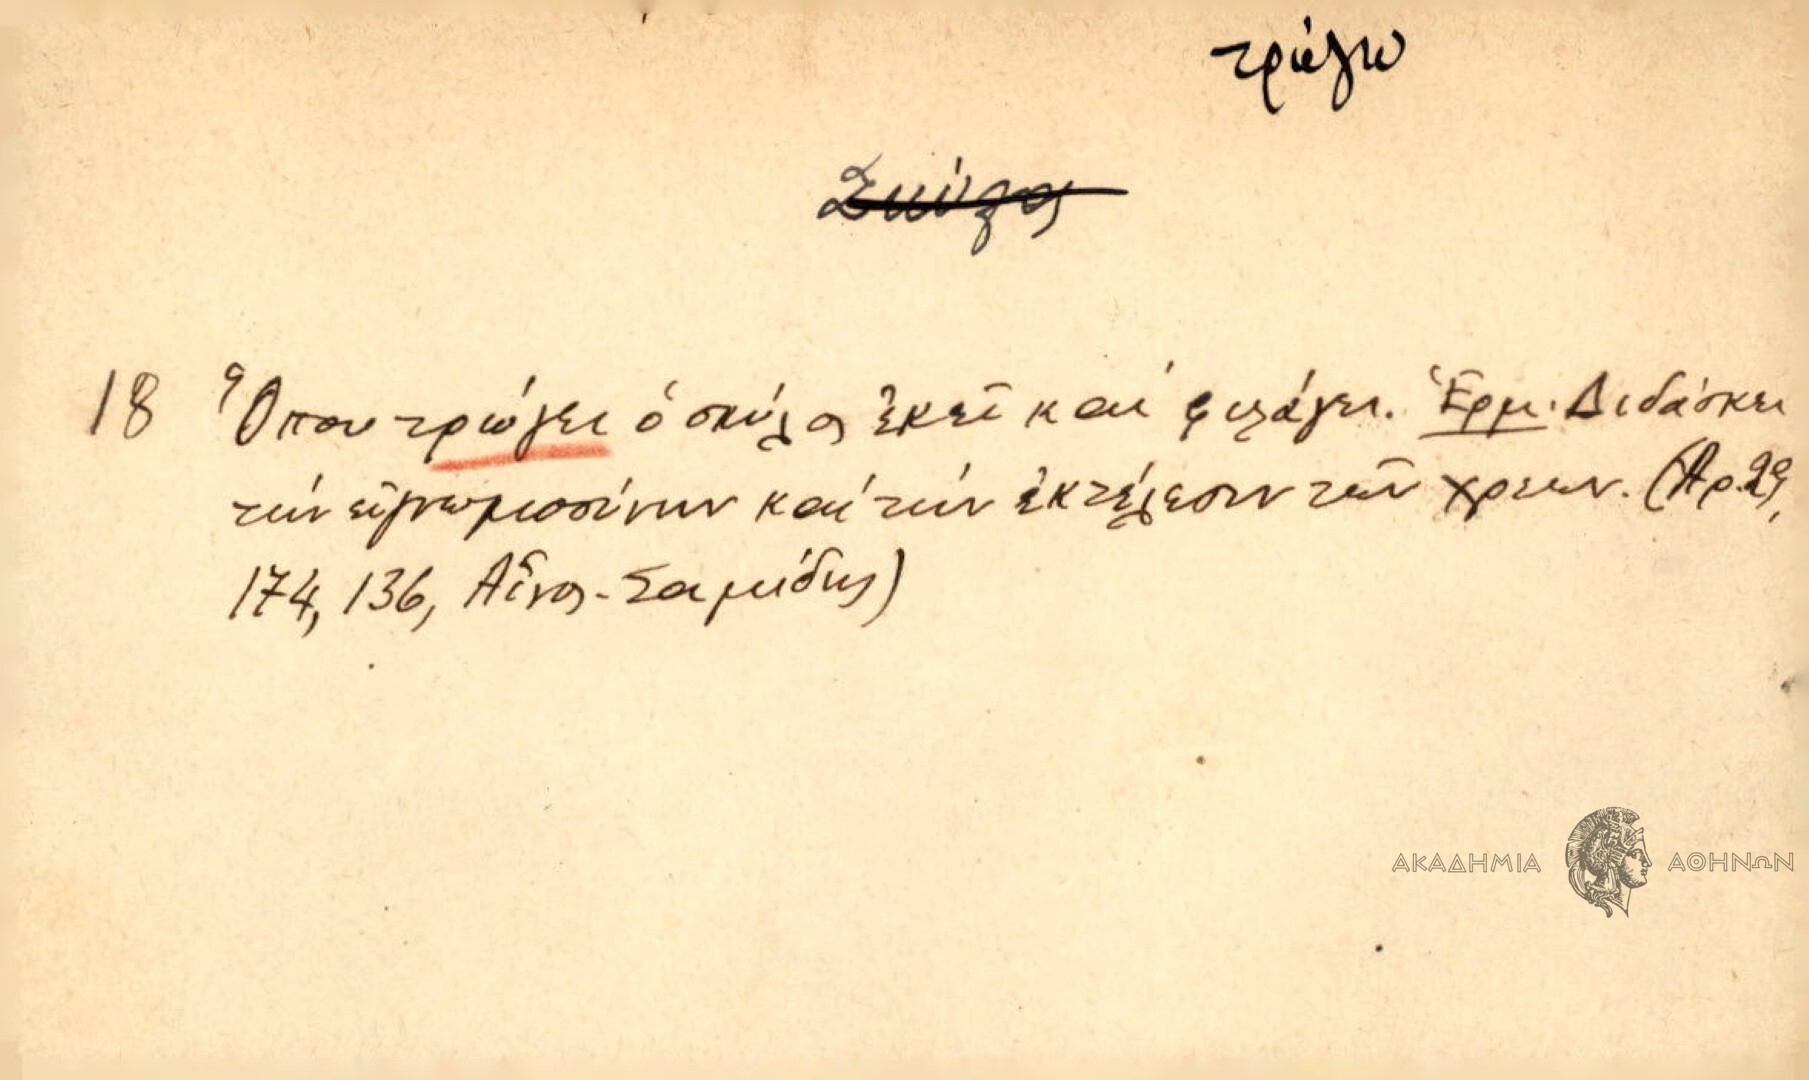 τρώγω
Σκύλος
18 Ὅπου τρώγει ὁ σκύλος ἐκεῖ καὶ φυλάγει. Ἑρμ. Διδάσκει
τὴν εὐγνωμοσύνην καὶ τὴν ἐκτέλεσιν τῶν χρεῶν. (Ἀρ. 29,
174, 136, Αἶνος - Σαμίδης)
ΑΚΑΔΗΜΙΑ ΑΘΗΝΩΝ